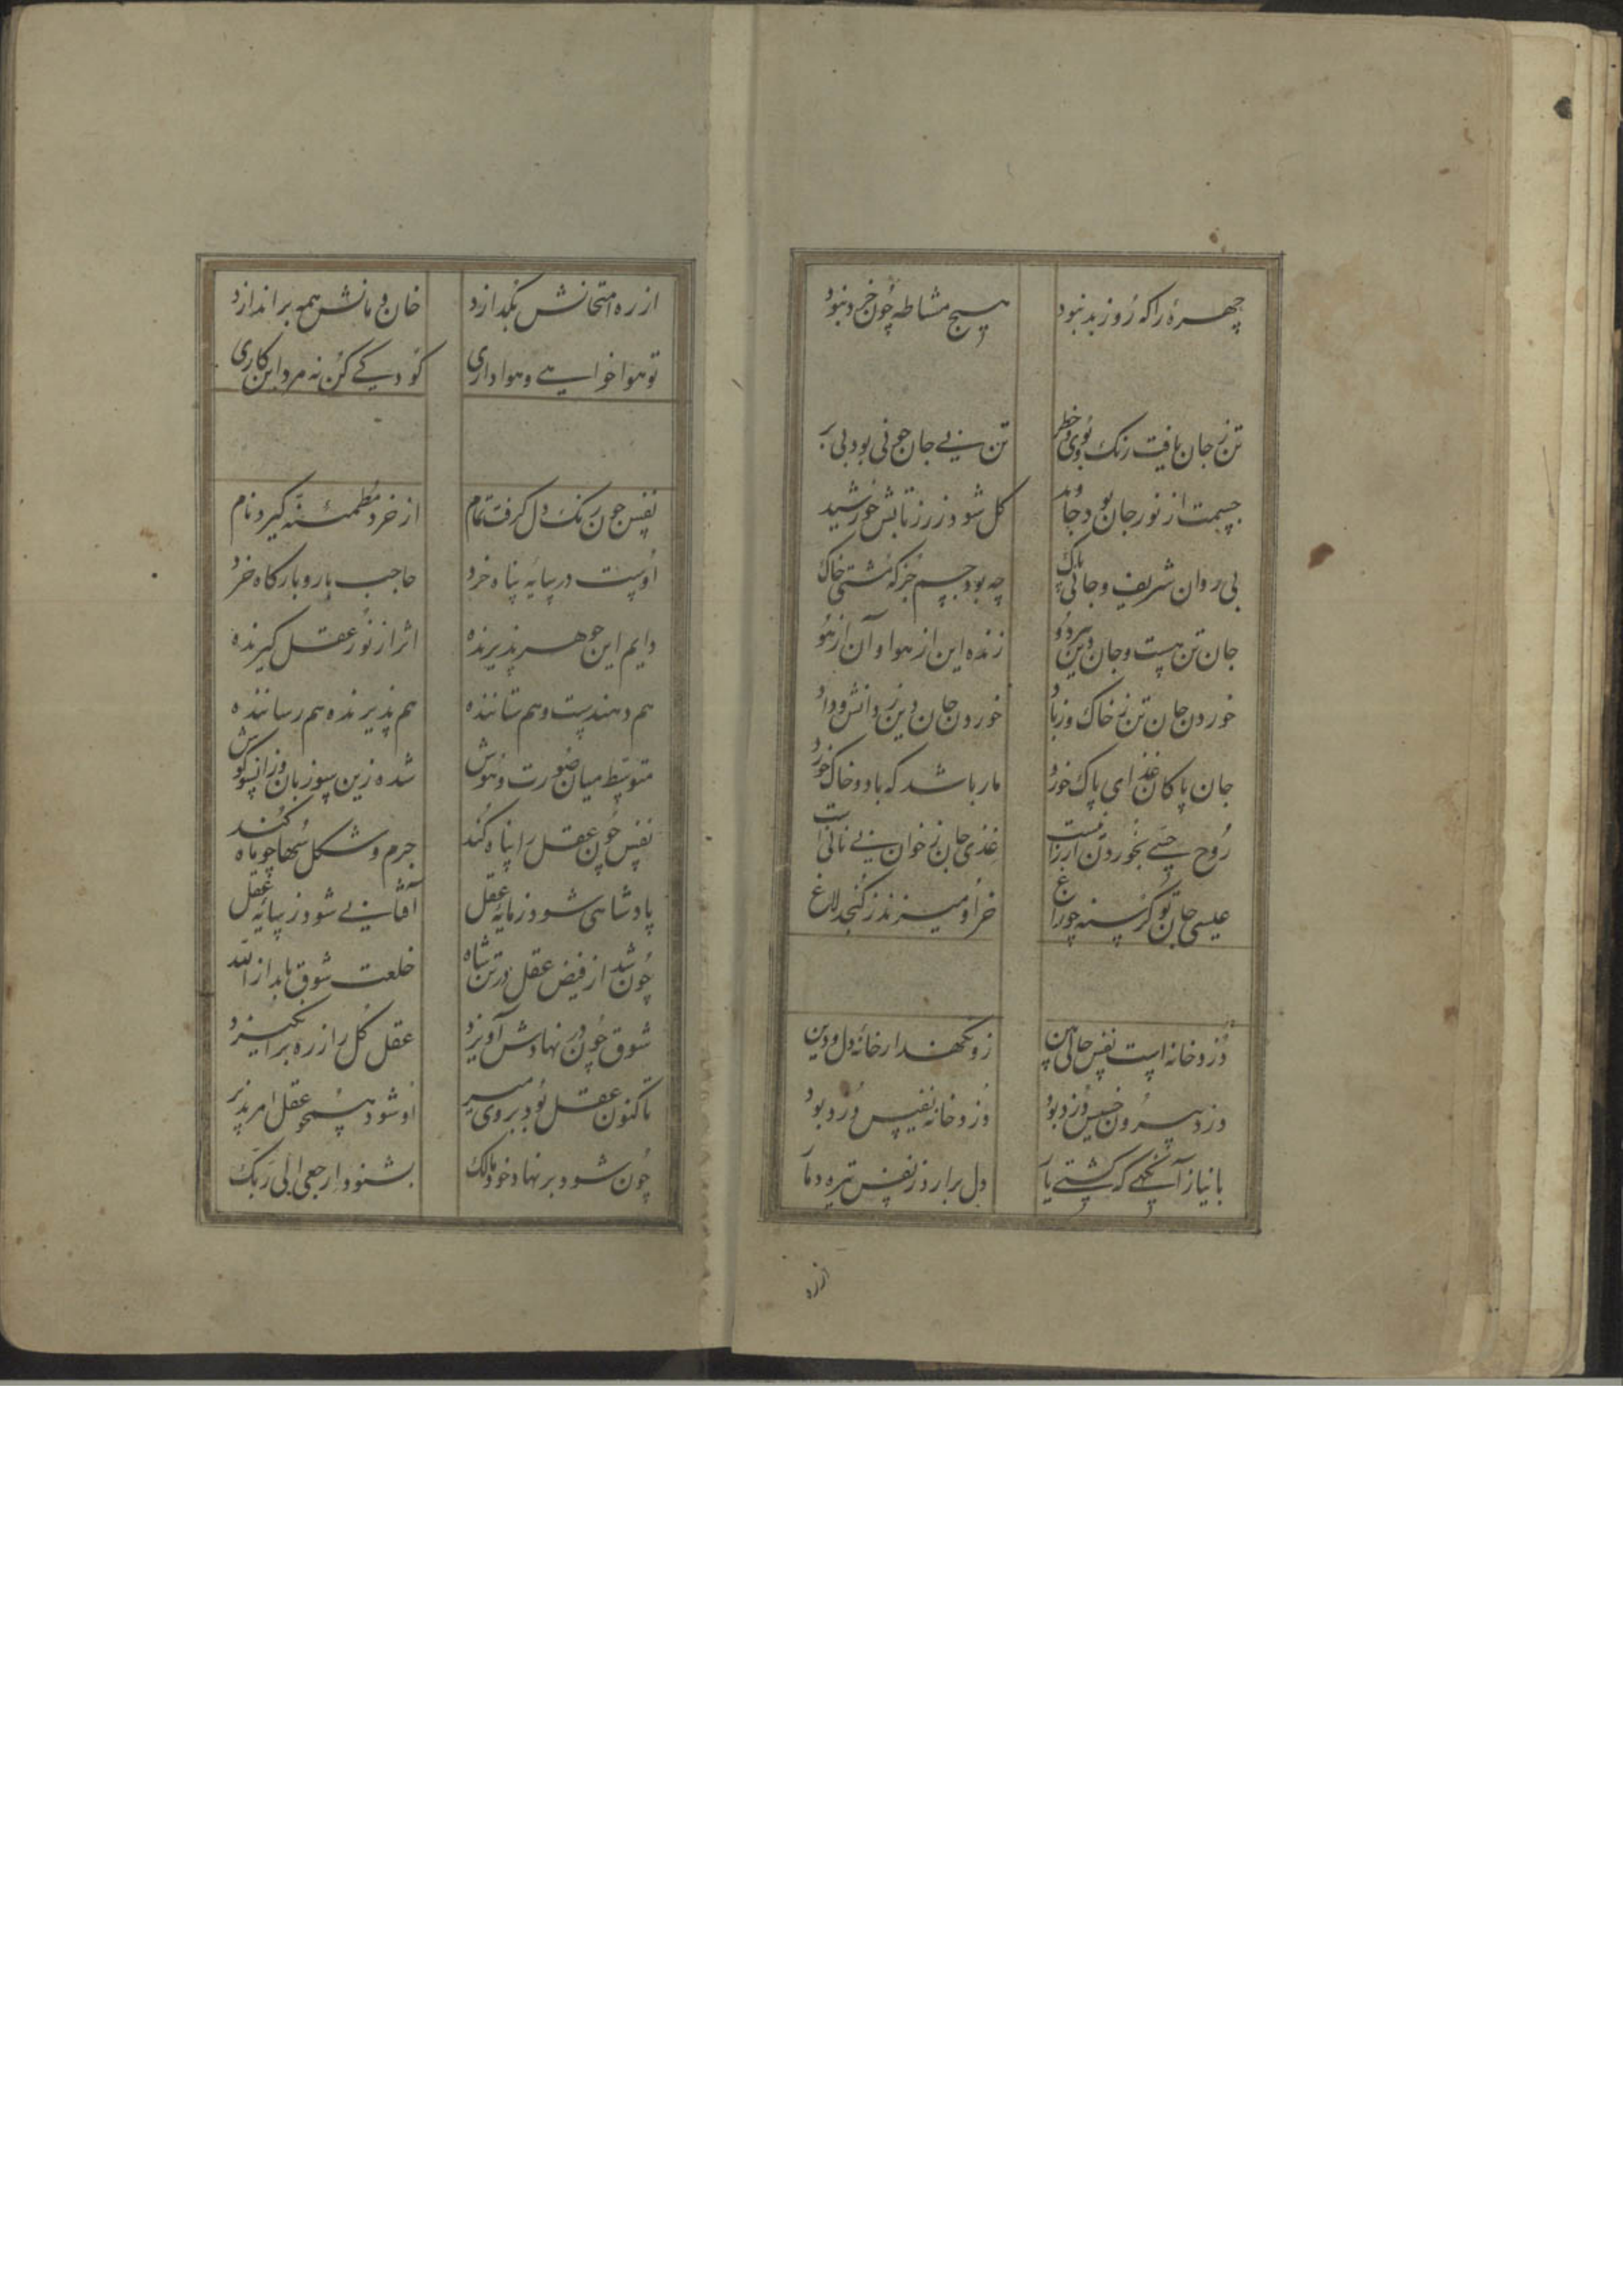 چهرهٔ را که روز بد نبود هیچ مشاطه چون خرد نبود
تن ز جان یافت رنک و بوی و خطر تن بی جان چو نی بود بی بر
جسمت از نور جان بود جاوید کل شود زر ز تابش خورشید
بی روان شریف و جانی پاک چه بود جسم جز که مشتی خاک
جان تن هست و جان دین هر دو زنده این از هوا و آن از هو
خوردن جان تن ز خاک و ز باد خوردن جان دین ز دانش و داد
جان پاکان غذای پاک خورد مار باشد که باد و خاک خورد
غذی جان ز خوان بی نانی است
عیسی جان تو کرسنه چو زاغ خر او میزند ز کنجد لاغ
دزد خانه است نفس حالی بین زو نکهدار خانهٔ دل و دین
دزد بیرون خسیس دزد بود دزد خانه نفیس دزد بود
دل برارد ز نفس تیره دمار
از ره
از ره امتحانش بکدازد خان و مانش همه براندازد
تو هوا خواهی و هواداری کودکی کن نه مرد این کاری
نفس چون رنک دل کرفت تمام از خرد مطمئنه کیرد نام
اوست در سایه پناه خرد حاجب بار و بارکاه خرد
دایم این جوهر پذیرنده اثر از نور عقل کیرنده
هم دهندست و هم ستاننده هم پذیرنده هم رساننده
متوسط میان صورت و هوش شده زین سو زبان وزانسو کوش
نفس چون عقل را پناه کند جرم و شکل سها چو ماه کند
پادشاهی شود ز مایه عقل آفتابی شود ز سایه عقل
چون شد از فیض عقل در تن شاه خلعت شوق یابد از الله
شوق چون در نهادش آویزد عقل کل را ز ره برانکیزد
تا کنون عقل بود بر وی میر او شود همچو عقل امر پذیر
چون شود بر نهاد خود مالک بشنود ارجعی الی ربک